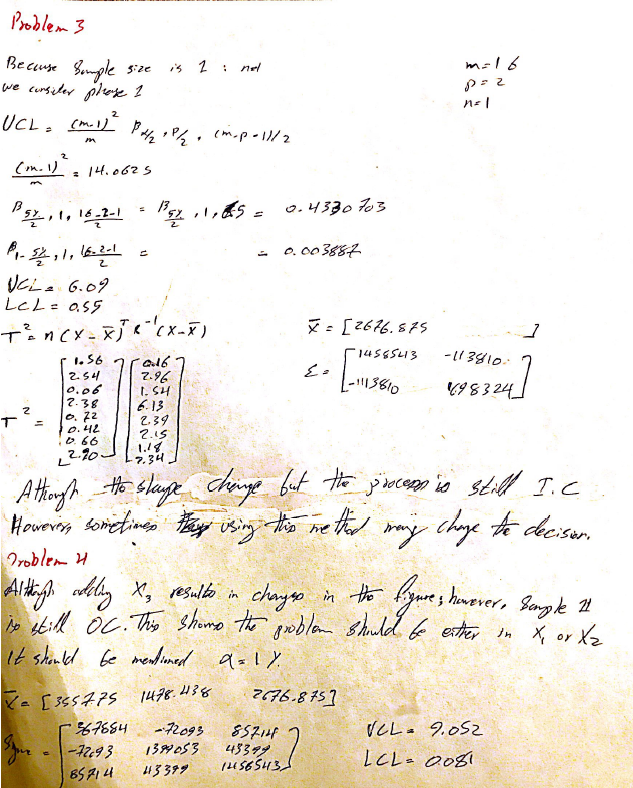 Problem 3
Because Sample size is 1 : n=1
we consider phase 1
m=16
p=2
n=1
UCL = (m-1)²/m β α/2, P/2, (m-p-1)/2
(m-1)²/m = 14.0625
β 5%/2, 1, 16-2-1/2 = β 5%/2, 1, 6.5 = 0.4330703
β 1-5%/2, 1, 16-2-1/2 = = 0.003887
UCL = 6.09
LCL = 0.55
T² = n(X-X̄)ᵀ ε⁻¹(X-X̄)
X̄ = [2676.875 ]
Σ = [1456543 -113810
-113810 698324]
T² =
1.56 0.16
2.54 2.96
0.06 1.54
2.38 6.13
0.72 2.39
0.42 2.15
0.66 1.18
2.20 2.34
Athough the shape change but the process is still I.C
However, sometimes using this method may change the decision.
Problem 4
Although adding X₃ results in changes in the figure; however, Sample 11
is still OC. This shows the problem should be either in X₁ or X₂
It should be mentioned α=1%
X̄ = [3557.75 1478.438 2676.875]
367684 -72093 85714
-72093 1399053 43399
85714 43399 1456543
UCL = 9.052
LCL = 0.081